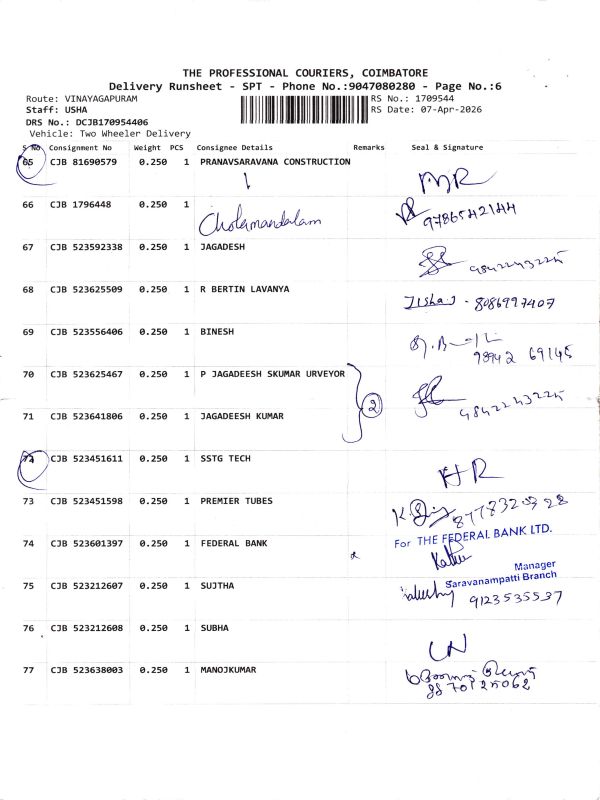 THE PROFESSIONAL COURIERS, COIMBATORE
Delivery Runsheet - SPT - Phone No.:9047080280 - Page No.:6
Route: VINAYAGAPURAM RS No.: 1709544
Staff: USHA RS Date: 07-Apr-2026
DRS No.: DCJB170954406
Vehicle: Two Wheeler Delivery
S No Consignment No Weight PCS Consignee Details Remarks Seal & Signature
65 CJB 81690579 0.250 1 PRANAVSARAVANA CONSTRUCTION
66 CJB 1796448 0.250 1 Cholamandalam 9786542144
67 CJB 523592338 0.250 1 JAGADESH 9842243225
68 CJB 523625509 0.250 1 R BERTIN LAVANYA Jisha J - 8086997407
69 CJB 523556406 0.250 1 BINESH 98942 69145
70 CJB 523625467 0.250 1 P JAGADEESH SKUMAR URVEYOR 2 9842243225
71 CJB 523641806 0.250 1 JAGADEESH KUMAR
72 CJB 523451611 0.250 1 SSTG TECH
73 CJB 523451598 0.250 1 PREMIER TUBES
74 CJB 523601397 0.250 1 FEDERAL BANK For THE FEDERAL BANK LTD.
Manager
Saravanampatti Branch
75 CJB 523212607 0.250 1 SUJTHA 9123535537
76 CJB 523212608 0.250 1 SUBHA
77 CJB 523638003 0.250 1 MANOJKUMAR